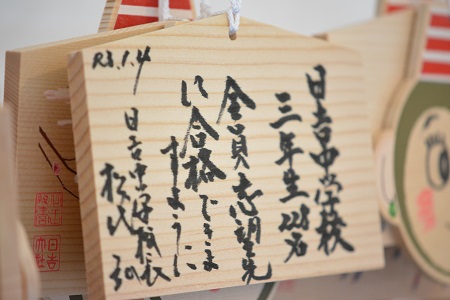 日吉中学校
三年生228名
全員志望先
に合格できま
すように
R3.1.4
日吉中学校長